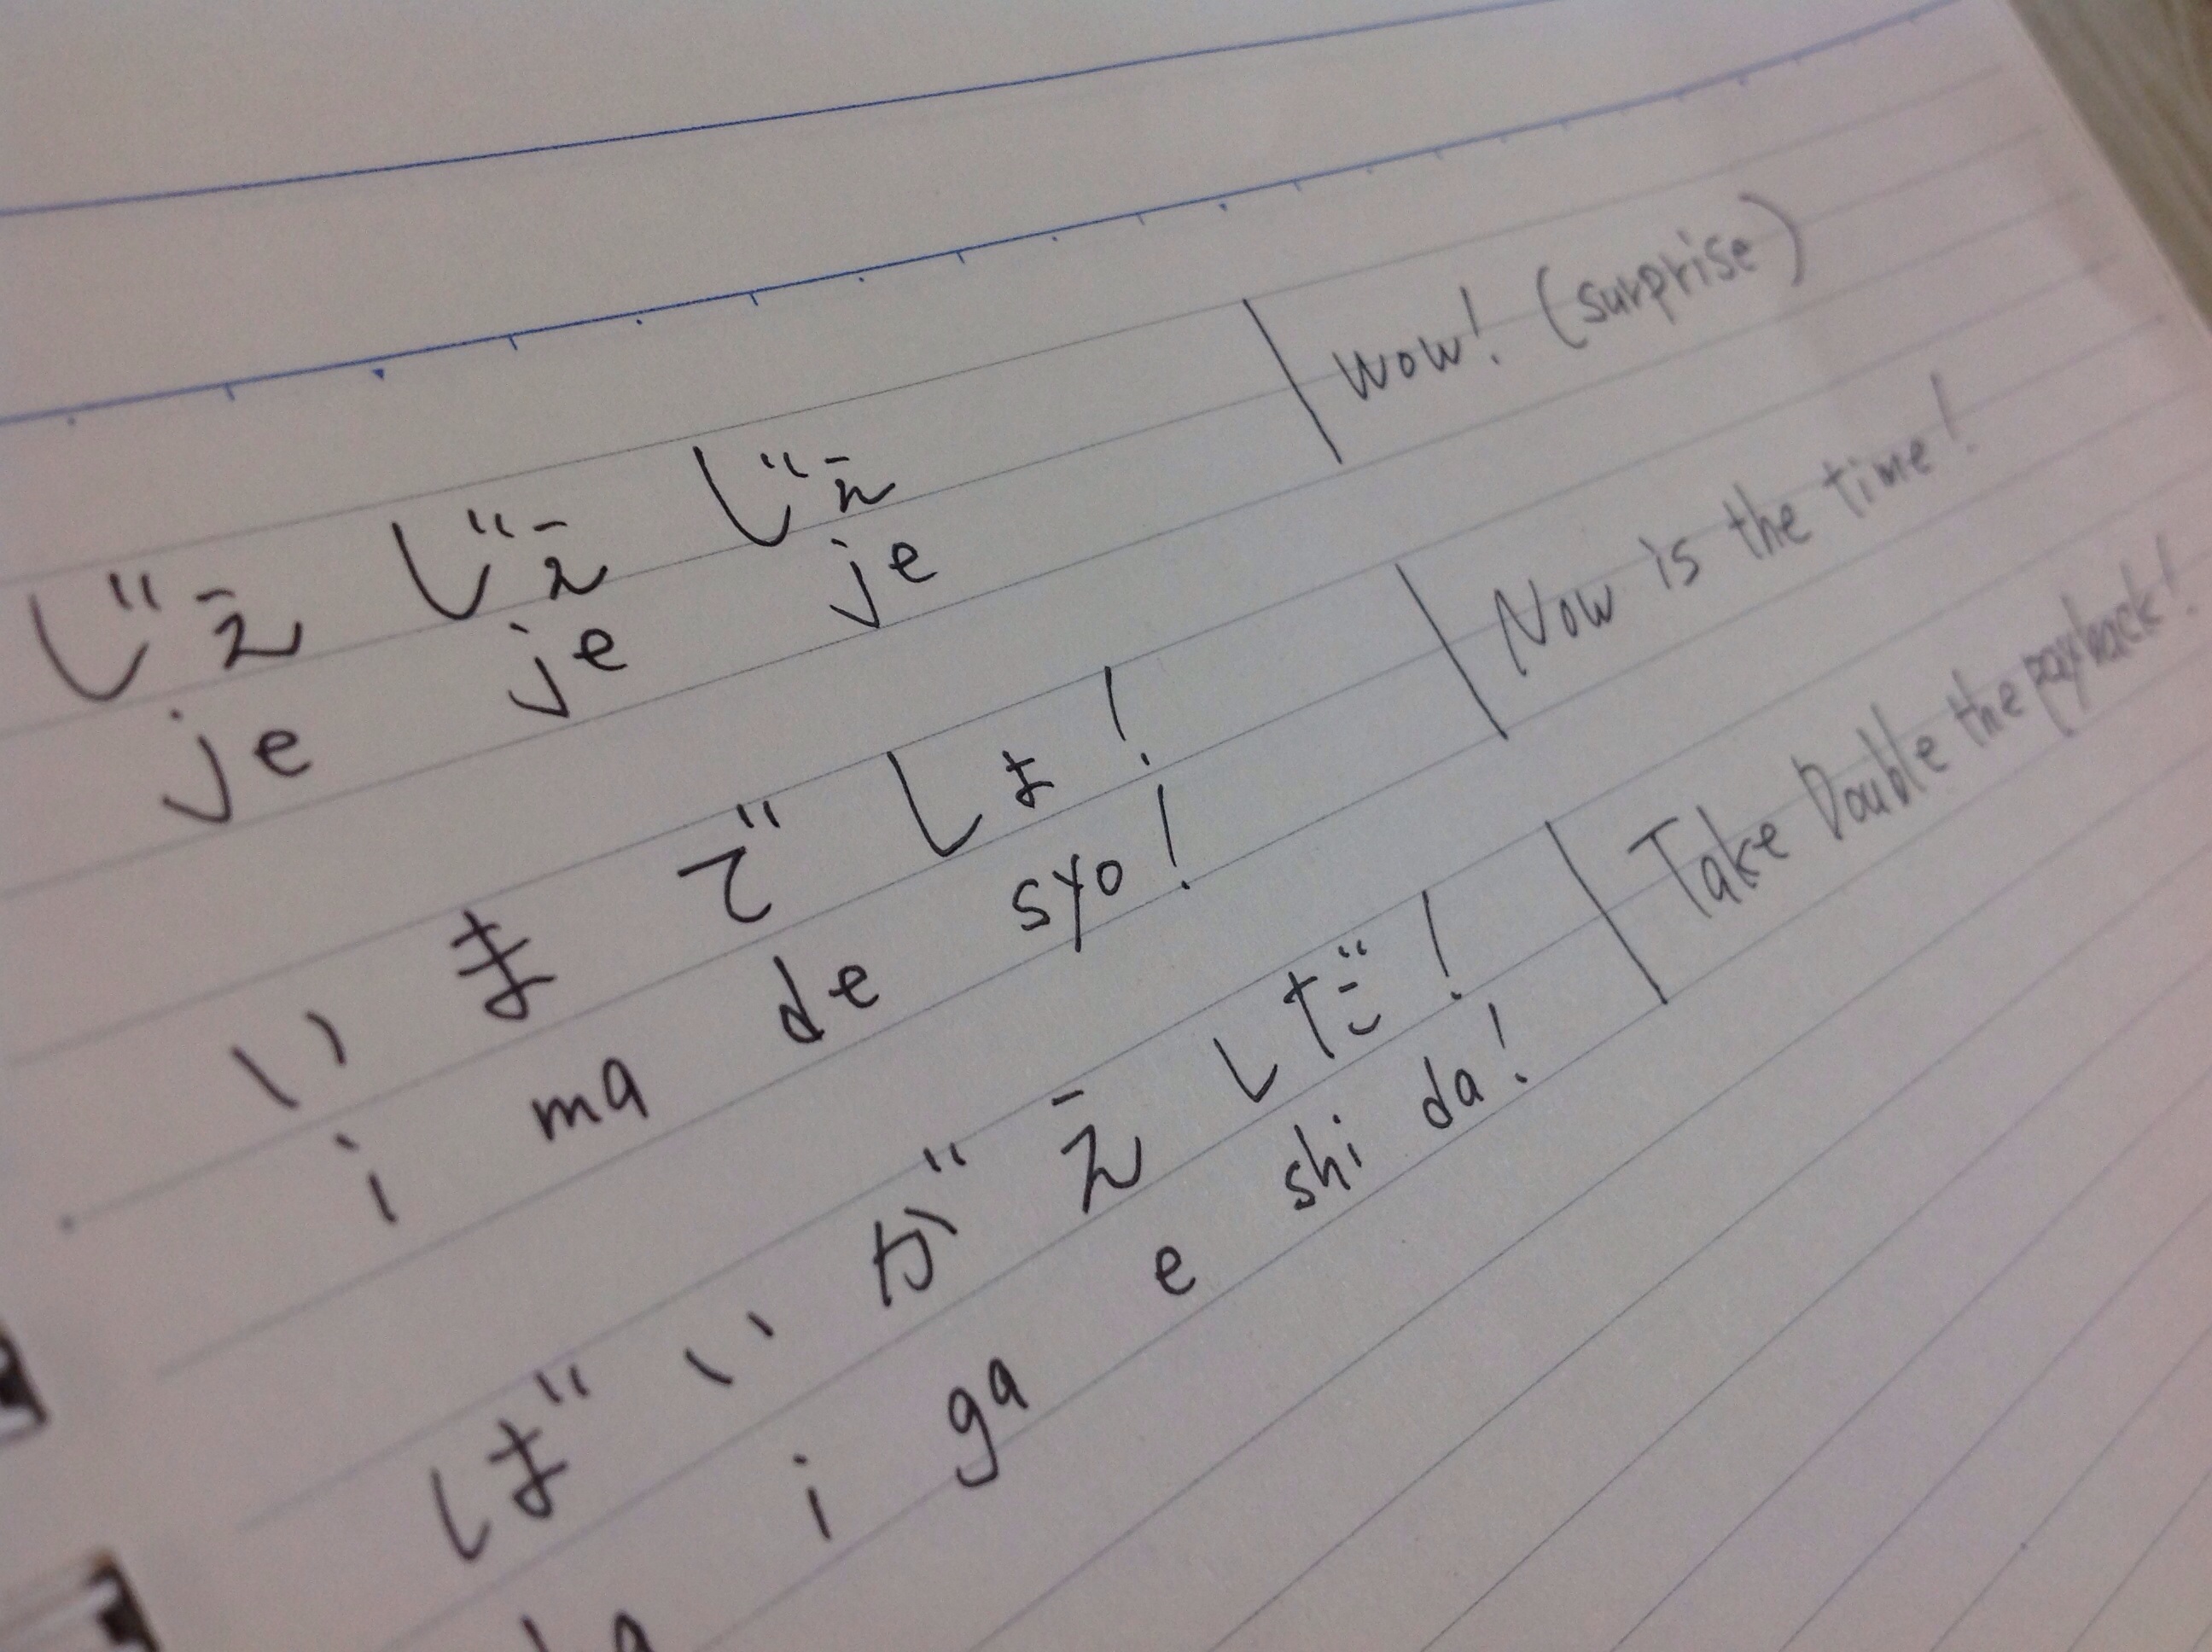 じぇ じぇ じぇ
je je je
wow! (surprise)
いまでしょ!
i ma de syo!
Now is the time!
ばいがえしだ!
ba i ga e shi da!
Take Double the payback!